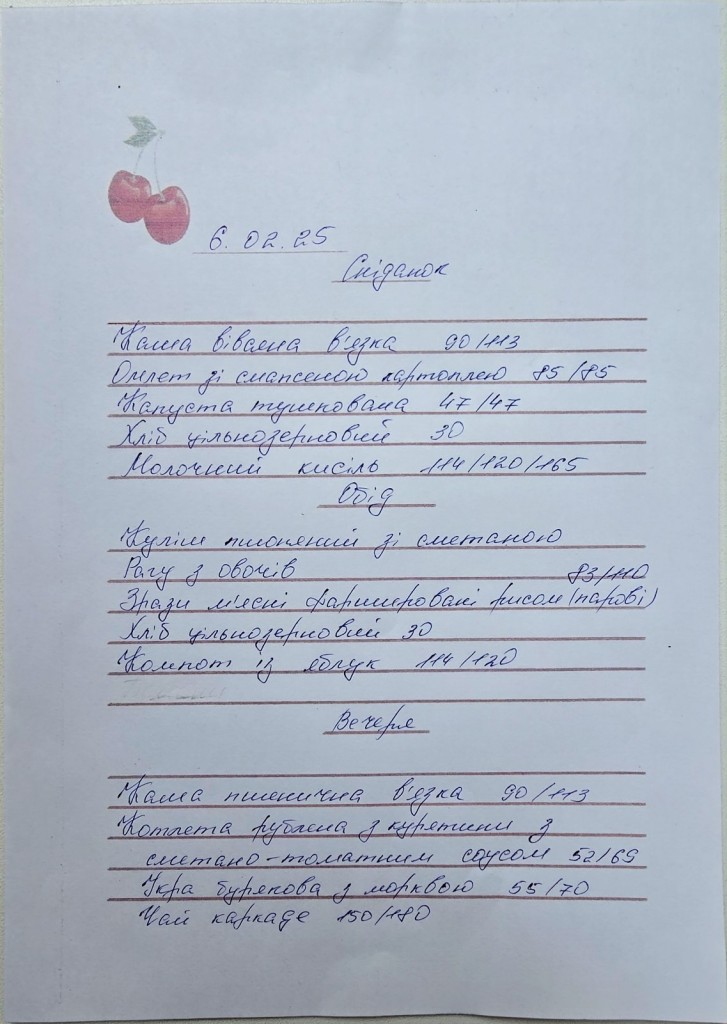 6.02.25
Сніданок
Каша вівсяна в'язка 90/113
Омлет зі смаженою картоплею 85/85
Капуста тушкована 47/47
Хліб цільнозерновий 30
Молочний кисіль 114/120/165
Обід
Куліш пшоняний зі сметаною
Рагу з овочів 83/110
Зрази м'ясні фаршировані рисом (парові)
Хліб цільнозерновий 30
Компот із яблук 114/120
Вечеря
Каша пшенична в'язка 90/113
Котлета рублена з курятини з
сметано-томатним соусом 52/69
Ікра бурякова з морквою 55/70
Чай каркаде 150/180